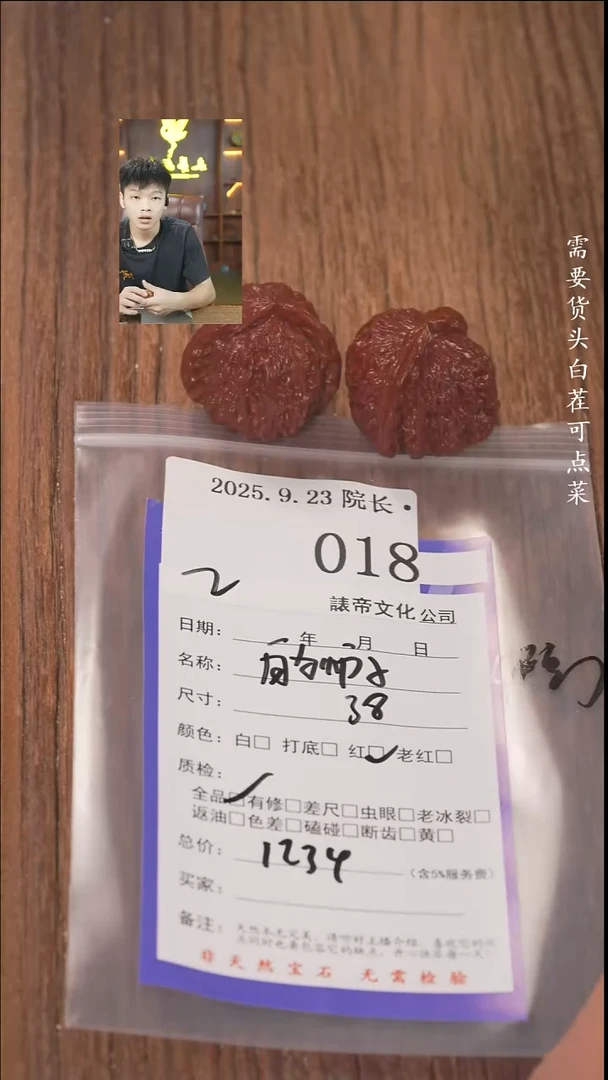 需要货头白茬可点菜
2025.9.23 院长·
018
2
諘帝文化公司
日期： 年 月 日
名称：
尺寸： 38
颜色：白□ 打底□ 红☑ 老红□
质检：
全品☑有修□差尺□虫眼□老冰裂□
返油□色差□磕碰□断齿□黄□
总价： 1234 （含5%服务费）
买家：
备注：
非天然宝石 无需检验